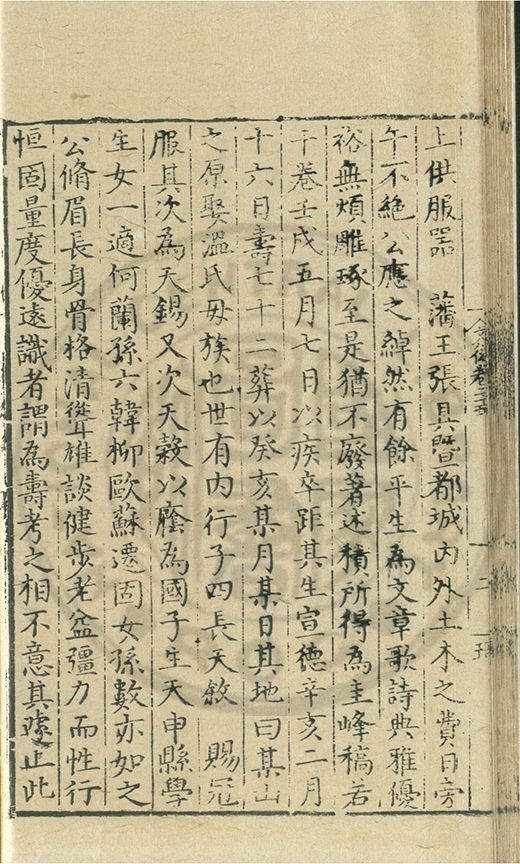 上供服器　藩王張具暨都城内外土木之費日旁
午不絶公應之綽然有餘平生為文章歌詩典雅優
裕無煩雕琢至是猶不廢著述積所得為圭峰稿若
干卷壬戌五月七日以疾卒距其生宣德辛亥二月
十六日壽七十二葬以癸亥某月某日其地曰某山
之原娶溫氏母族也世有内行子四長天敘　賜冠
服其次為天錫又次天敎以廕為國子生天申縣學
生女一適何蘭孫六韓柳歐蘇遷固女孫數亦如之
公脩眉長身骨格清聳雄談健步老益彊力而性行
恒固量度優遠識者謂為壽考之相不意其遽止此